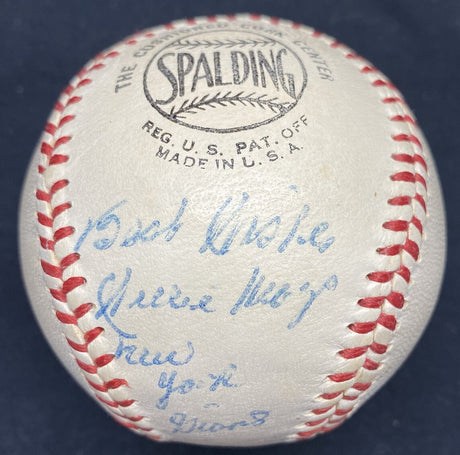 THE CUSHIONED CORK CENTER
SPALDING
REG. U. S. PAT. OFF
MADE IN U. S. A.
Best Wishes
Willie Mays
New
York
Giants